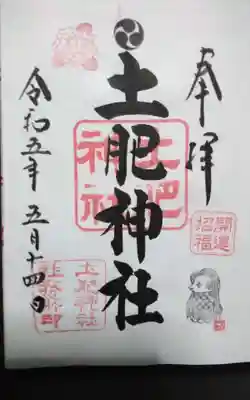 奉拝
開運
招福
土肥神社
土肥
神社
令和五年 五月十四日
土肥神社
社務所印